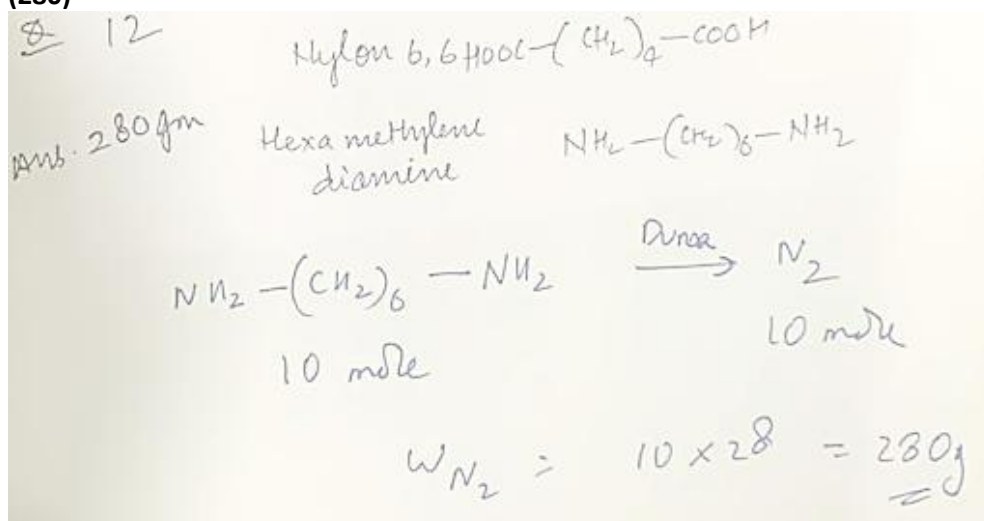 (280)
Q 12
Nylon 6,6 HOOC-(CH2)4-COOH
Ans. 280 gm
Hexa methylene
diamine
NH2-(CH2)6-NH2
NH2-(CH2)6-NH2 Dumas → N2
10 mole 10 mole
WN2 = 10 × 28 = 280g